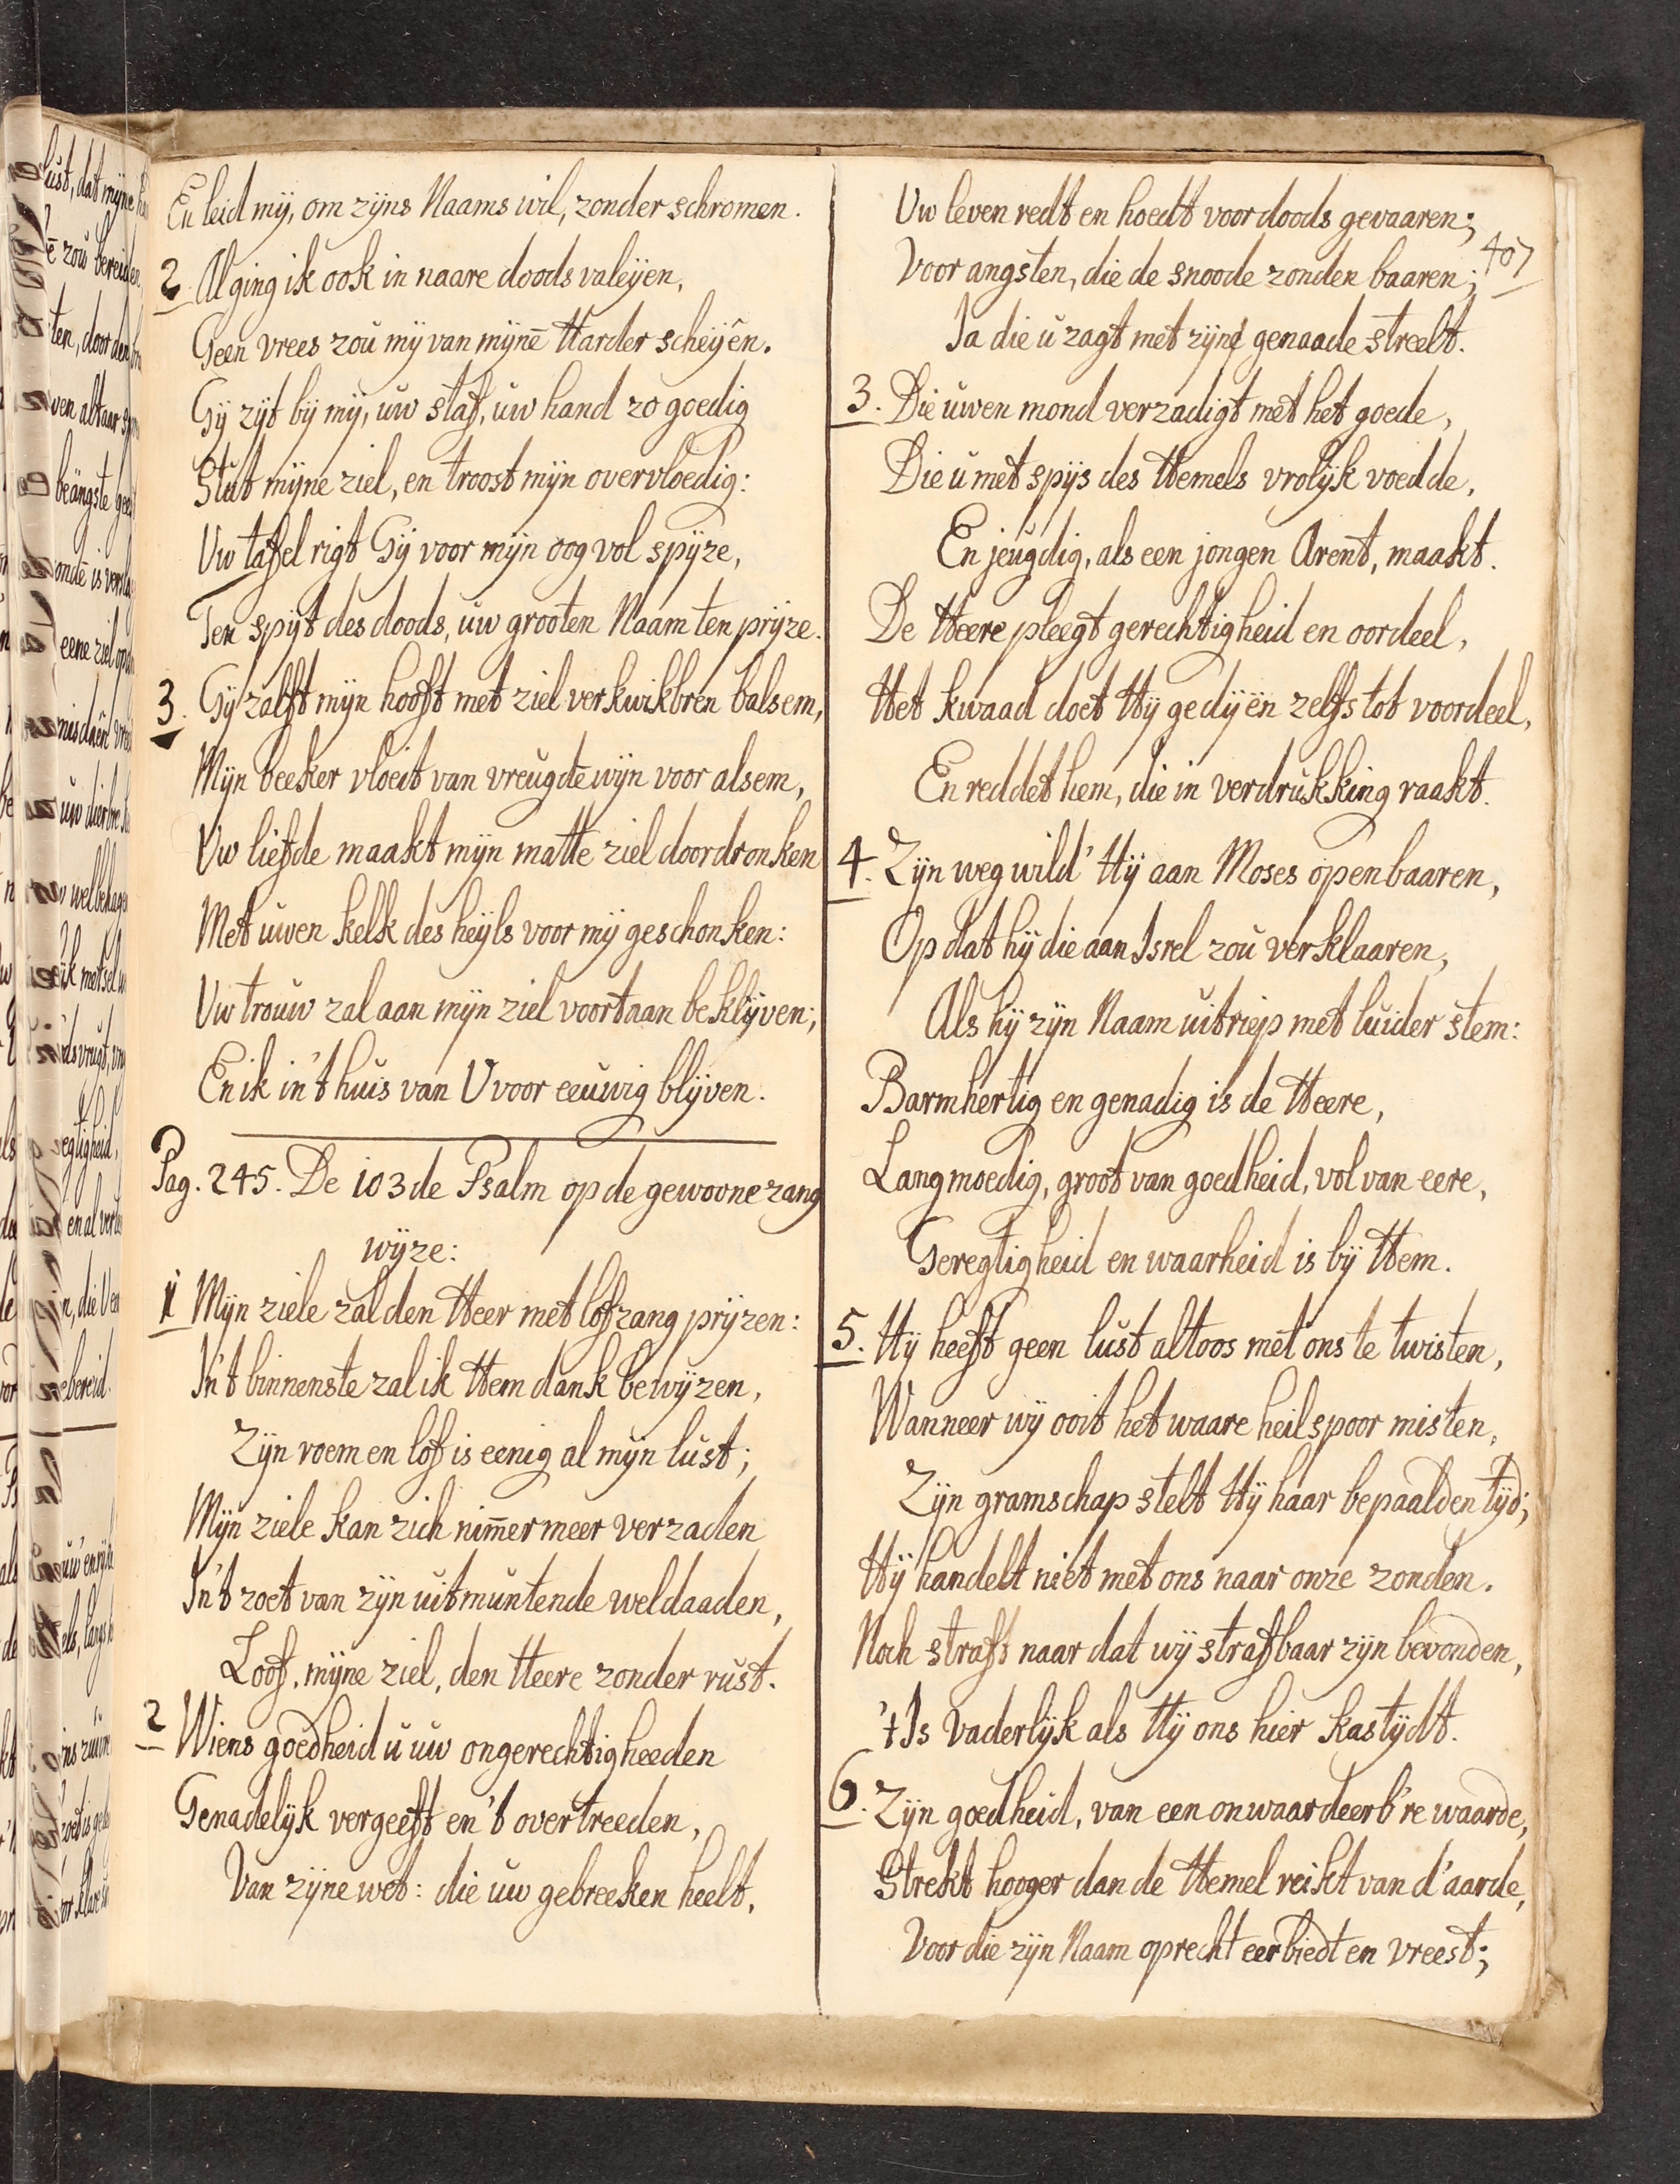 En leid mÿ, om zÿns Naams wil, zonder schromen.
2. Al ging ik ook in naare doods valeÿen,
Geen vrees zou mÿ van mÿnē Harder scheÿên.
Gÿ zÿt bÿ mÿ, uw staf, uw hand zo goedig
Stut mÿne ziel, en troost mÿn overvloedig:
Uw tafel rigt Gÿ voor mÿn oog vol spÿze,
Ten spÿt des doods, uw grooten Naam ten prÿze.
3. Gÿ zalft mÿn hooft met ziel verkwikbren balsem,
Mÿn beeker vloeit van vreugdēwÿn voor alsem,
Uw liefde maakt mÿn matte ziel doordronken
Met uwen kelk des heÿls voor mÿ geschonken:
Uw trouw zal aan mÿn ziel voortaan beklÿven;
En ik in 't huis van U voor eeuwig blÿven.
Pag. 245. De 103de Psalm op de gewoone zang
wÿze:
1 Mÿn ziele zal den Heer met lofzang prÿzen:
In 't binnenste zal ik Hem dank bewÿzen,
Zÿn roem en lof is eenig al mÿn lust;
Mÿn ziele kan zich nim̄ermeer verzaden
In 't zoet van zÿn uitmuntende weldaaden,
Loof, mÿne ziel, den Heere zonder rust.
2 Wiens goedheid u uw ongerechtigheeden
Genadelÿk vergeeft en 't overtreeden,
Van zÿne wet: die uw gebreeken heelt,
Uw leven redt en hoedt voor doods gevaaren;
407
Voor angsten, die de snoode zonden baaren;
Ja die u zagt met zÿne genaade streelt.
3. Die uwen mond verzadigt met het goede,
Die u met spÿs des Hemels vrolÿk voedde,
En jeugdig, als een jongen Arent, maakt.
De Heere pleegt gerechtigheid en oordeel,
Het kwaad doet Hÿ gedÿën zelfs tot voordeel,
En reddet hem, die in verdrukking raakt.
4. Zÿn weg wild' Hÿ aan Moses openbaaren,
Op dat hÿ die aan Isrel zou verklaaren,
Als hÿ zÿn Naam uitriep met luider stem:
Barmhertig en genadig is de Heere,
Langmoedig, groot van goedheid, vol van eere,
Geregtigheid en waarheid is bÿ Hem.
5. Hÿ heeft geen lust altoos met ons te twisten,
Wanneer wÿ ooit het waare heilspoor misten,
Zÿn gramschap stelt Hÿ haar bepaalden tÿd;
Hÿ handelt niet met ons naar onze zonden.
Noch straft naar dat wÿ strafbaar zÿn bevonden,
't Is Vaderlÿk als Hÿ ons hier kastÿdt.
6. Zÿn goedheid, van een onwaardeerb're waarde,
Strekt hooger dan de Hemel reikt van d'aarde,
Voor die zÿn Naam oprecht eerbiedt en vreest;